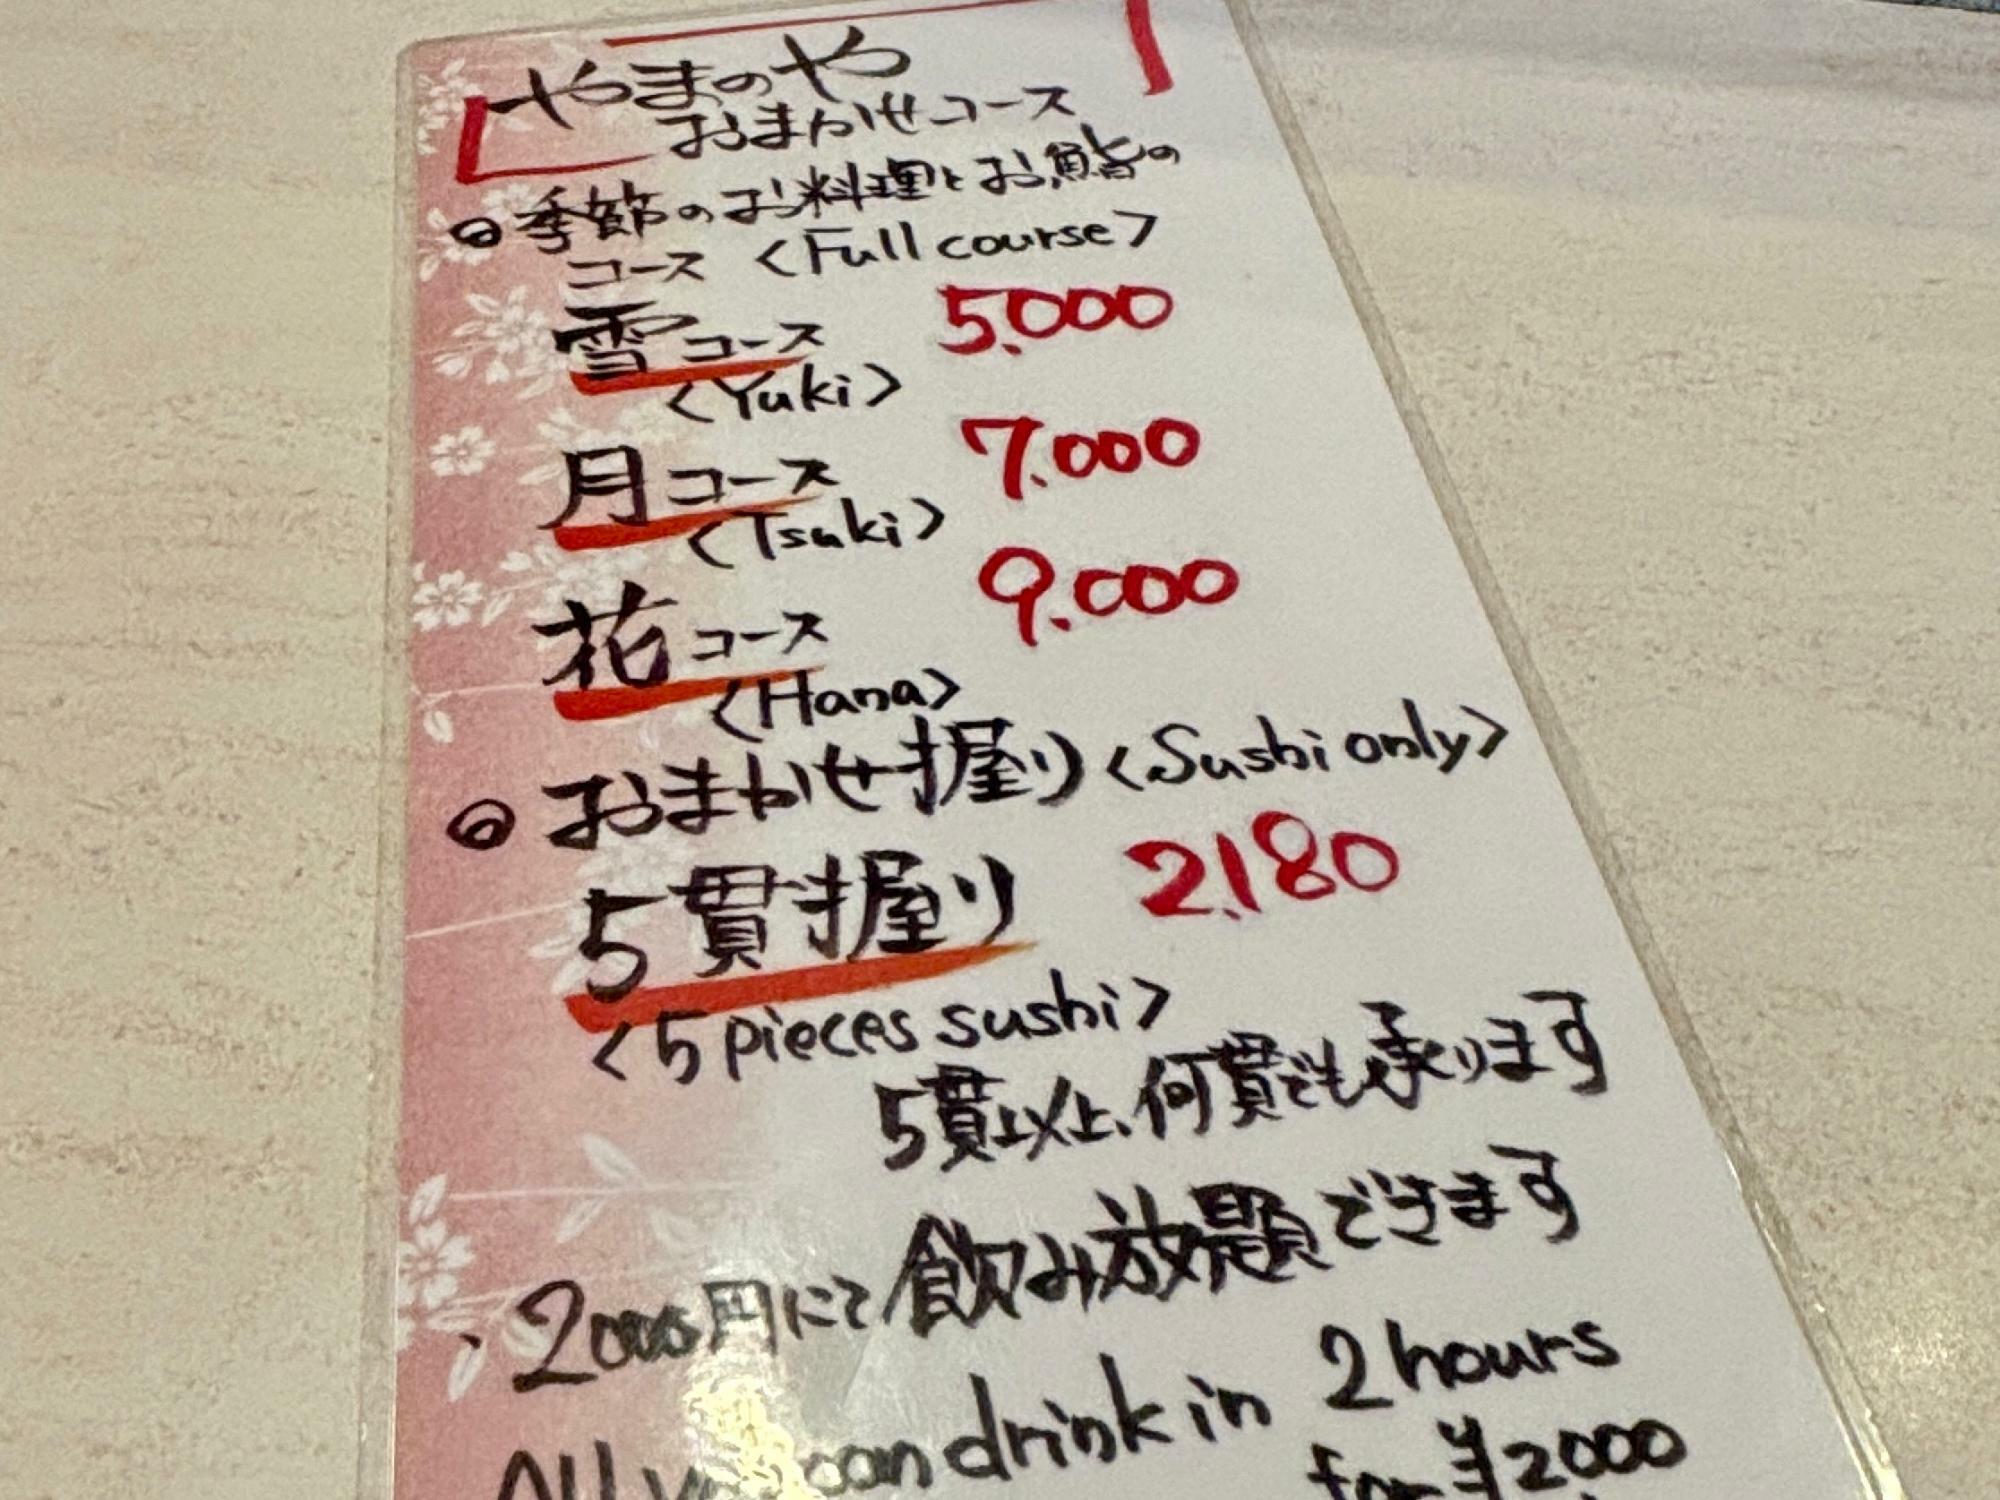 やまのや
おまかせコース
◎季節のお料理とお鮨の
コース <Full course>
雪コース 5,000
<Yuki>
月コース 7,000
<Tsuki>
花コース 9,000
<Hana>
◎おまかせ握り<Sushi only>
5貫握り 2,180
<5 pieces sushi>
5貫以上、何貫でも承ります
・2000円にて飲み放題できます
All you can drink in 2 hours
for ¥2,000